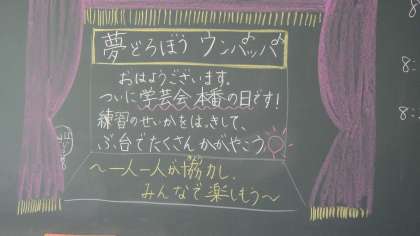 夢どろぼう ウンパッパ
おはようございます。
ついに学芸会本番の日です!
練習のせいかをはっきして、
ぶ台でたくさんかがやこう
~一人一人が協力し、
みんなで楽しもう~
8:
8:
8: